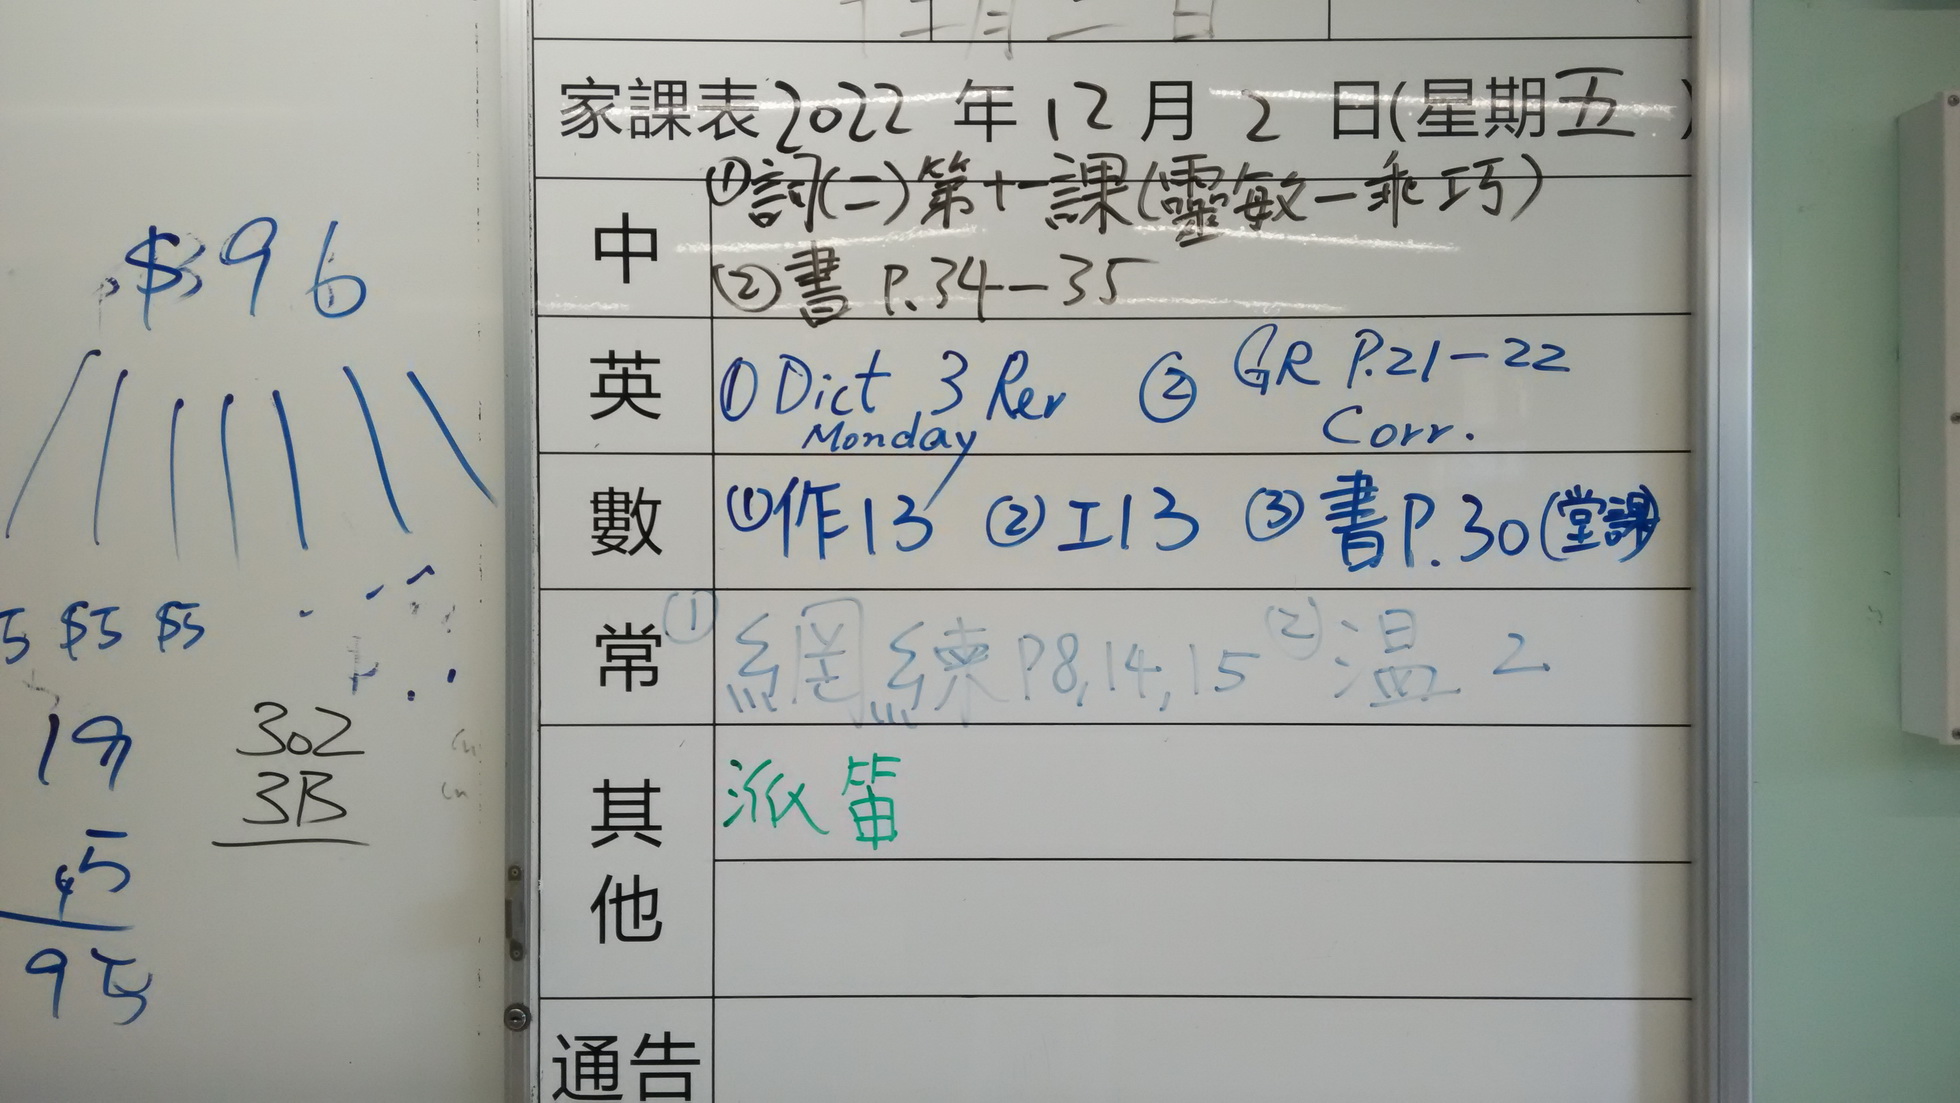 十二月二日
家課表2022年12月2日(星期五)
中
①詞(二)第十一課(靈敏—乖巧)
②書 P.34—35
英
①Dict 3 Rev ②GR P.21—22
Monday Corr.
數
①作13 ②工13 ③書P.30(堂課)
常
①網練P8,14,15 ②温 2
其他
派笛
通告
$96
5 $5 $5
19
5
95
302
3B